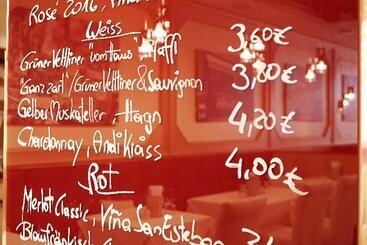 Rosé 2016,
Weiss
Grüner Veltliner "vom Haus", Taffl 3,60€
"Ganz zart"/Grüner Veltliner & Sauvignon 3,80€
Gelber Muskateller, 4,20€
Chardonnay, Andi Kraiss 4,00€
Rot
Merlot Classic, Viña San Esteban
Blaufränkisch